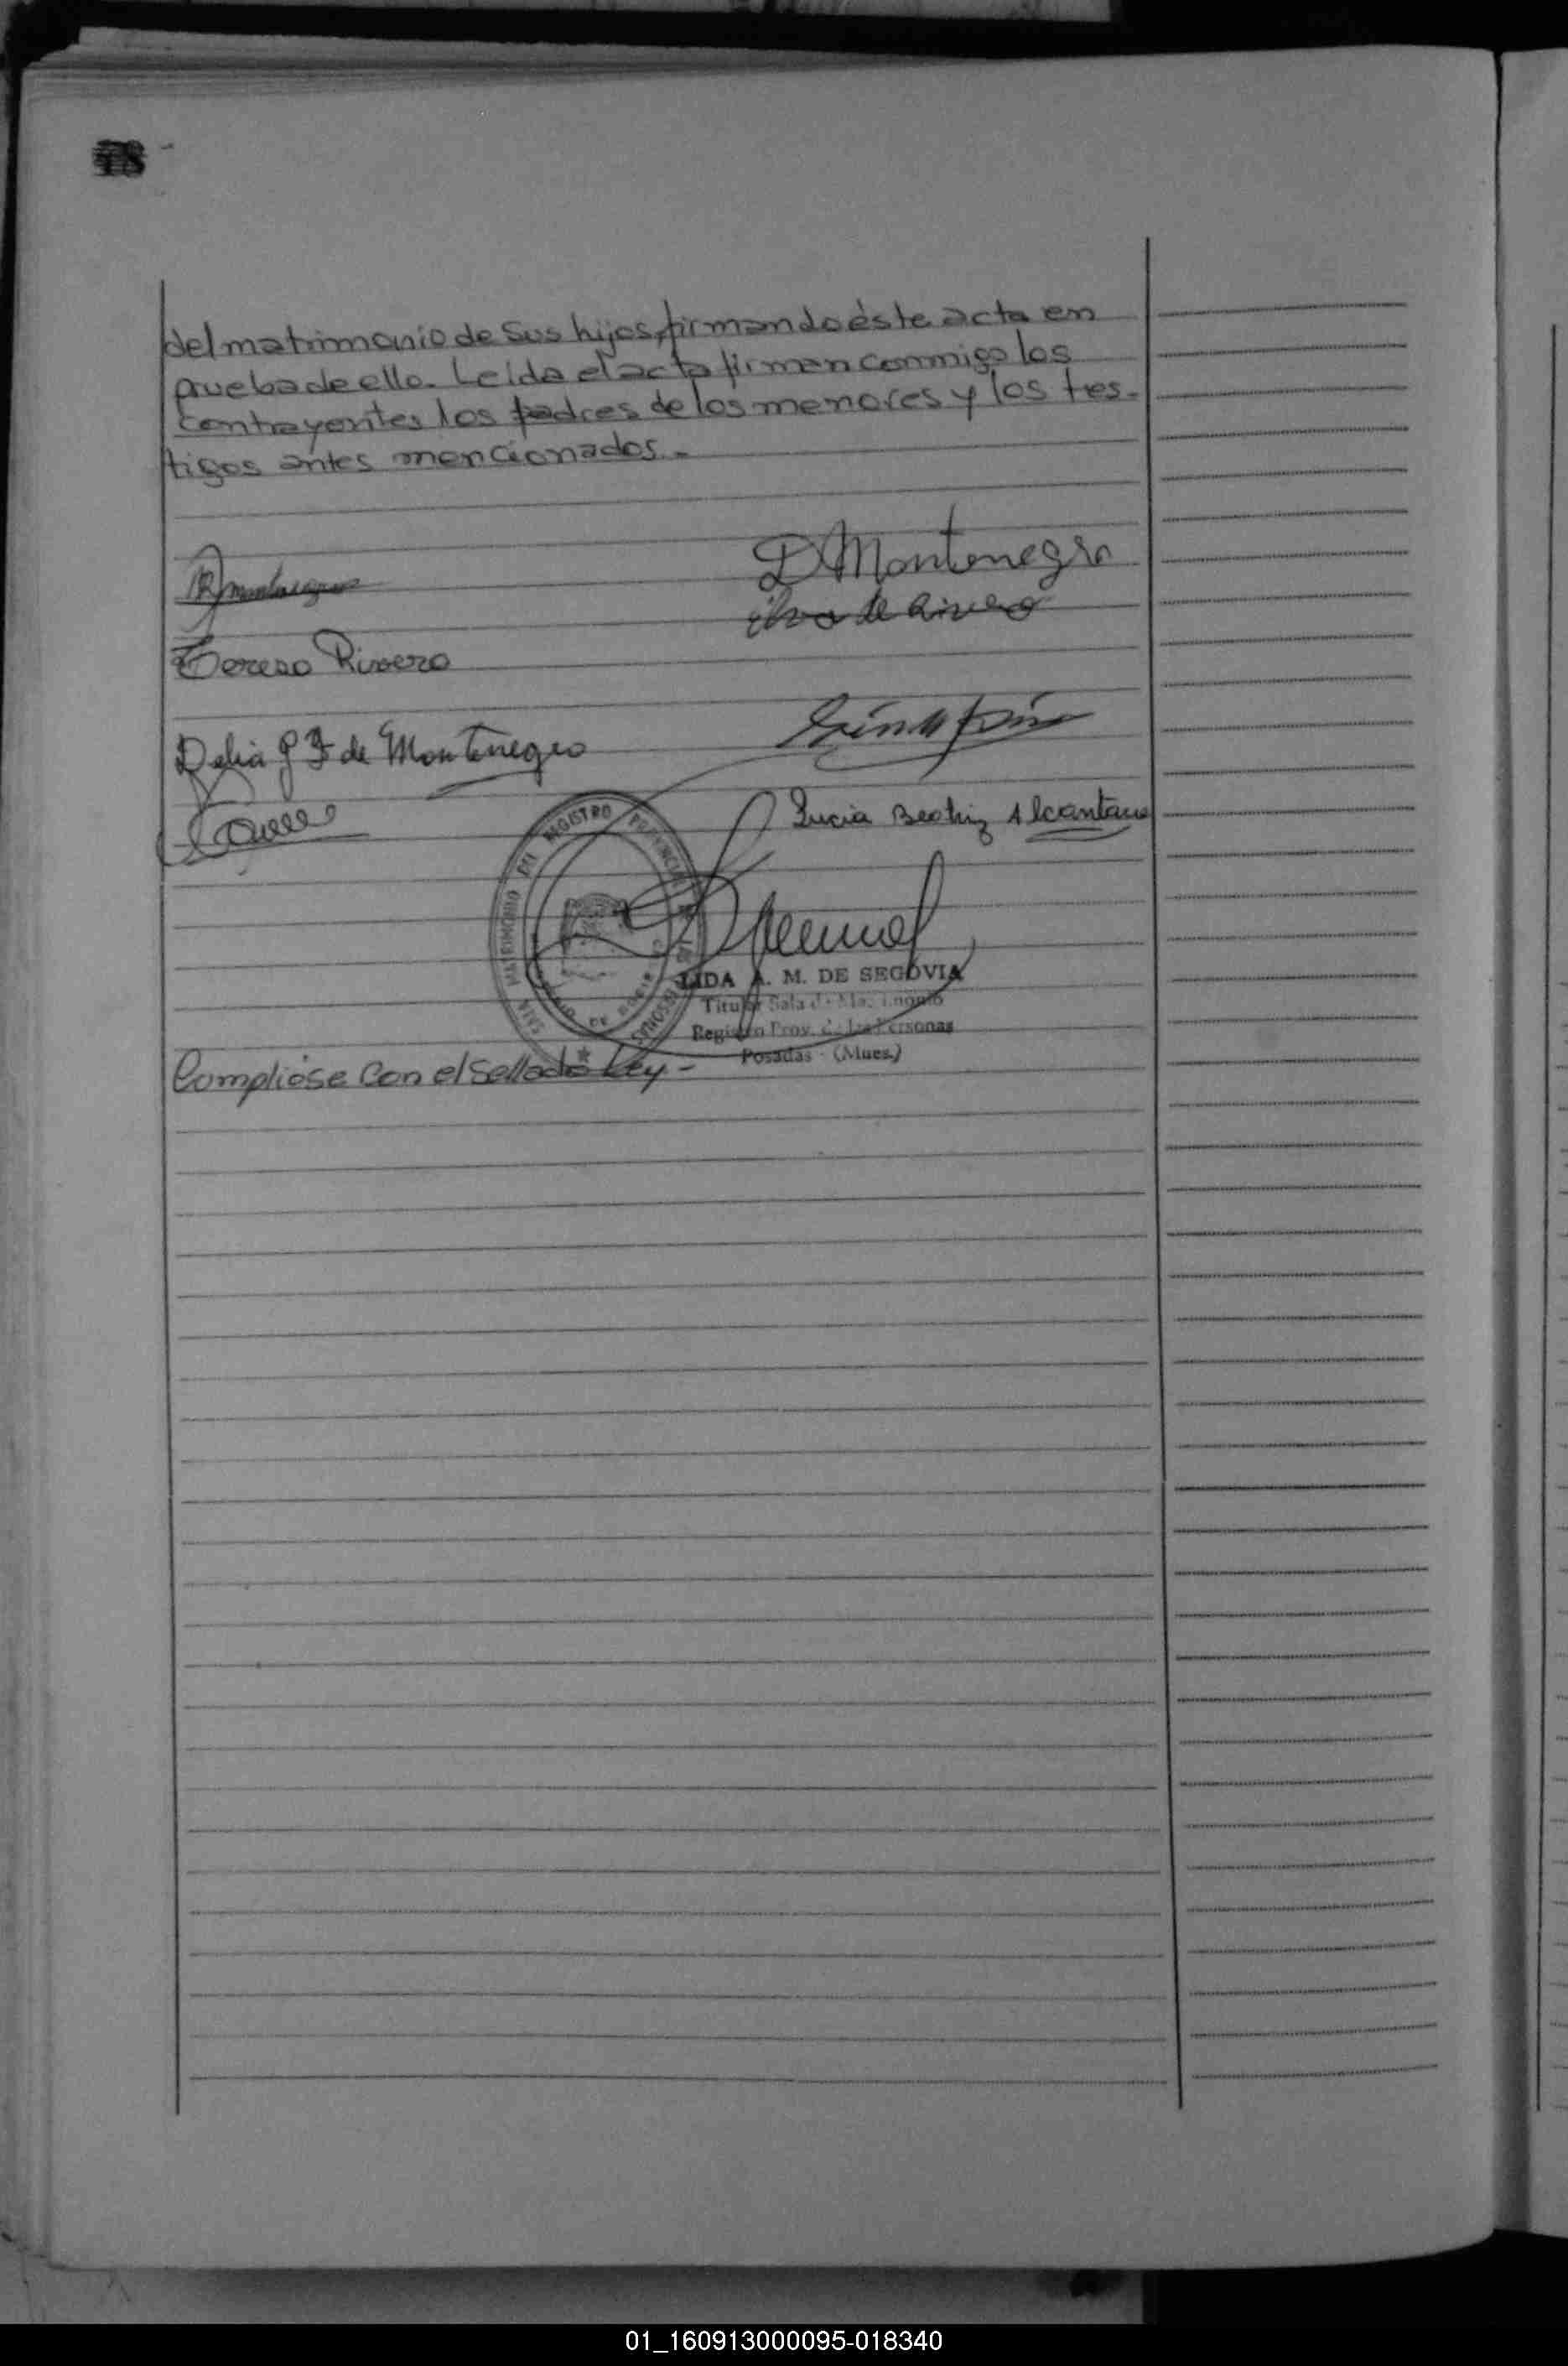 78
del matrimonio de sus hijos, firmando éste acta en
prueba de ello. Leída el acta firman conmigo los
contrayentes los padres de los menores y los tes-
tigos antes mencionados.-
D Montenegro
de Rivero
Teresa Rivero
Delia G F de Montenegro
Lucia Beatriz Alcantara
SALA MATRIMONIO DEL REGISTRO PROVINCIAL DE LAS PERSONAS
LIDA A. M. DE SEGOVIA
Titular Sala de Matrimonio
Registro Prov. de las Personas
Posadas - (Mnes.)
Complióse con el Sellado Ley -
01_160913000095-018340